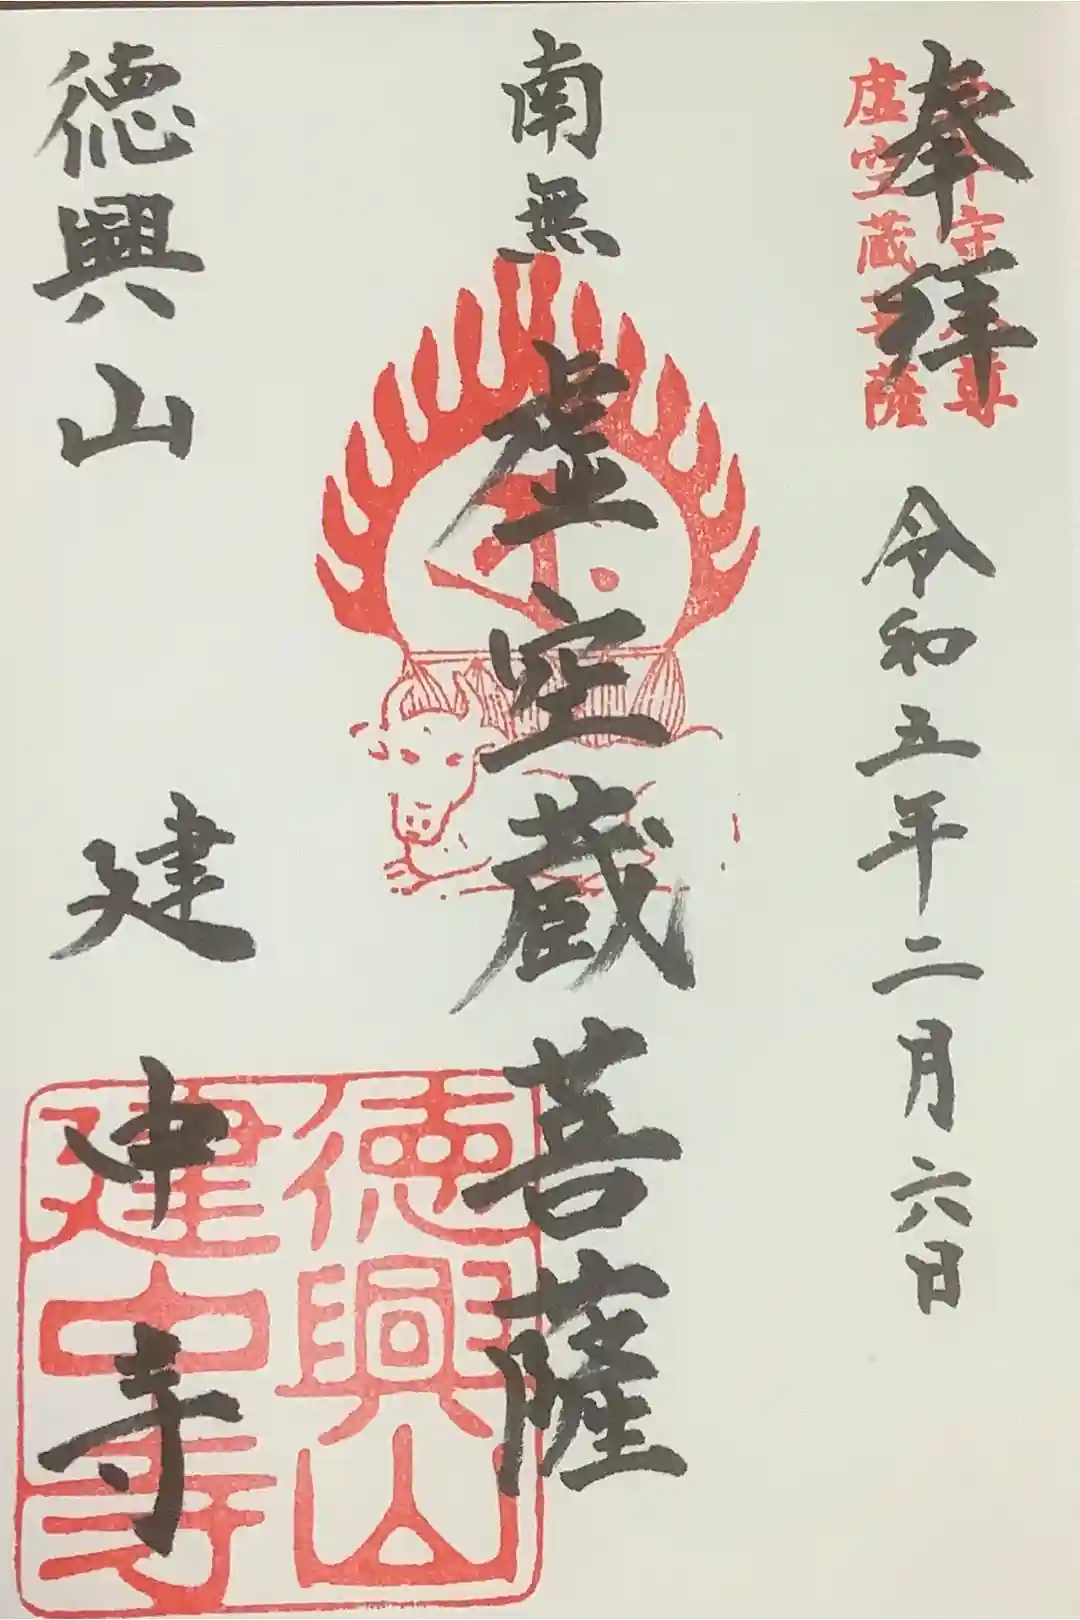 奉拝
令和五年二月六日
守
尊
虚空蔵菩薩
南無
虚空蔵菩薩
徳興山
建中寺
徳興山
建中寺